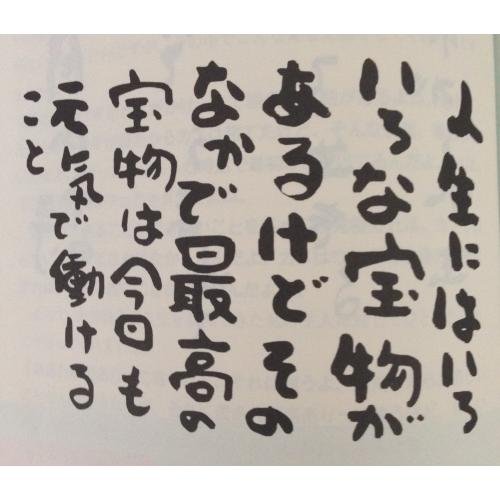 人生にはいろ
いろな宝物が
あるけどその
なかで最高の
宝物は今日も
元気で働ける
こと